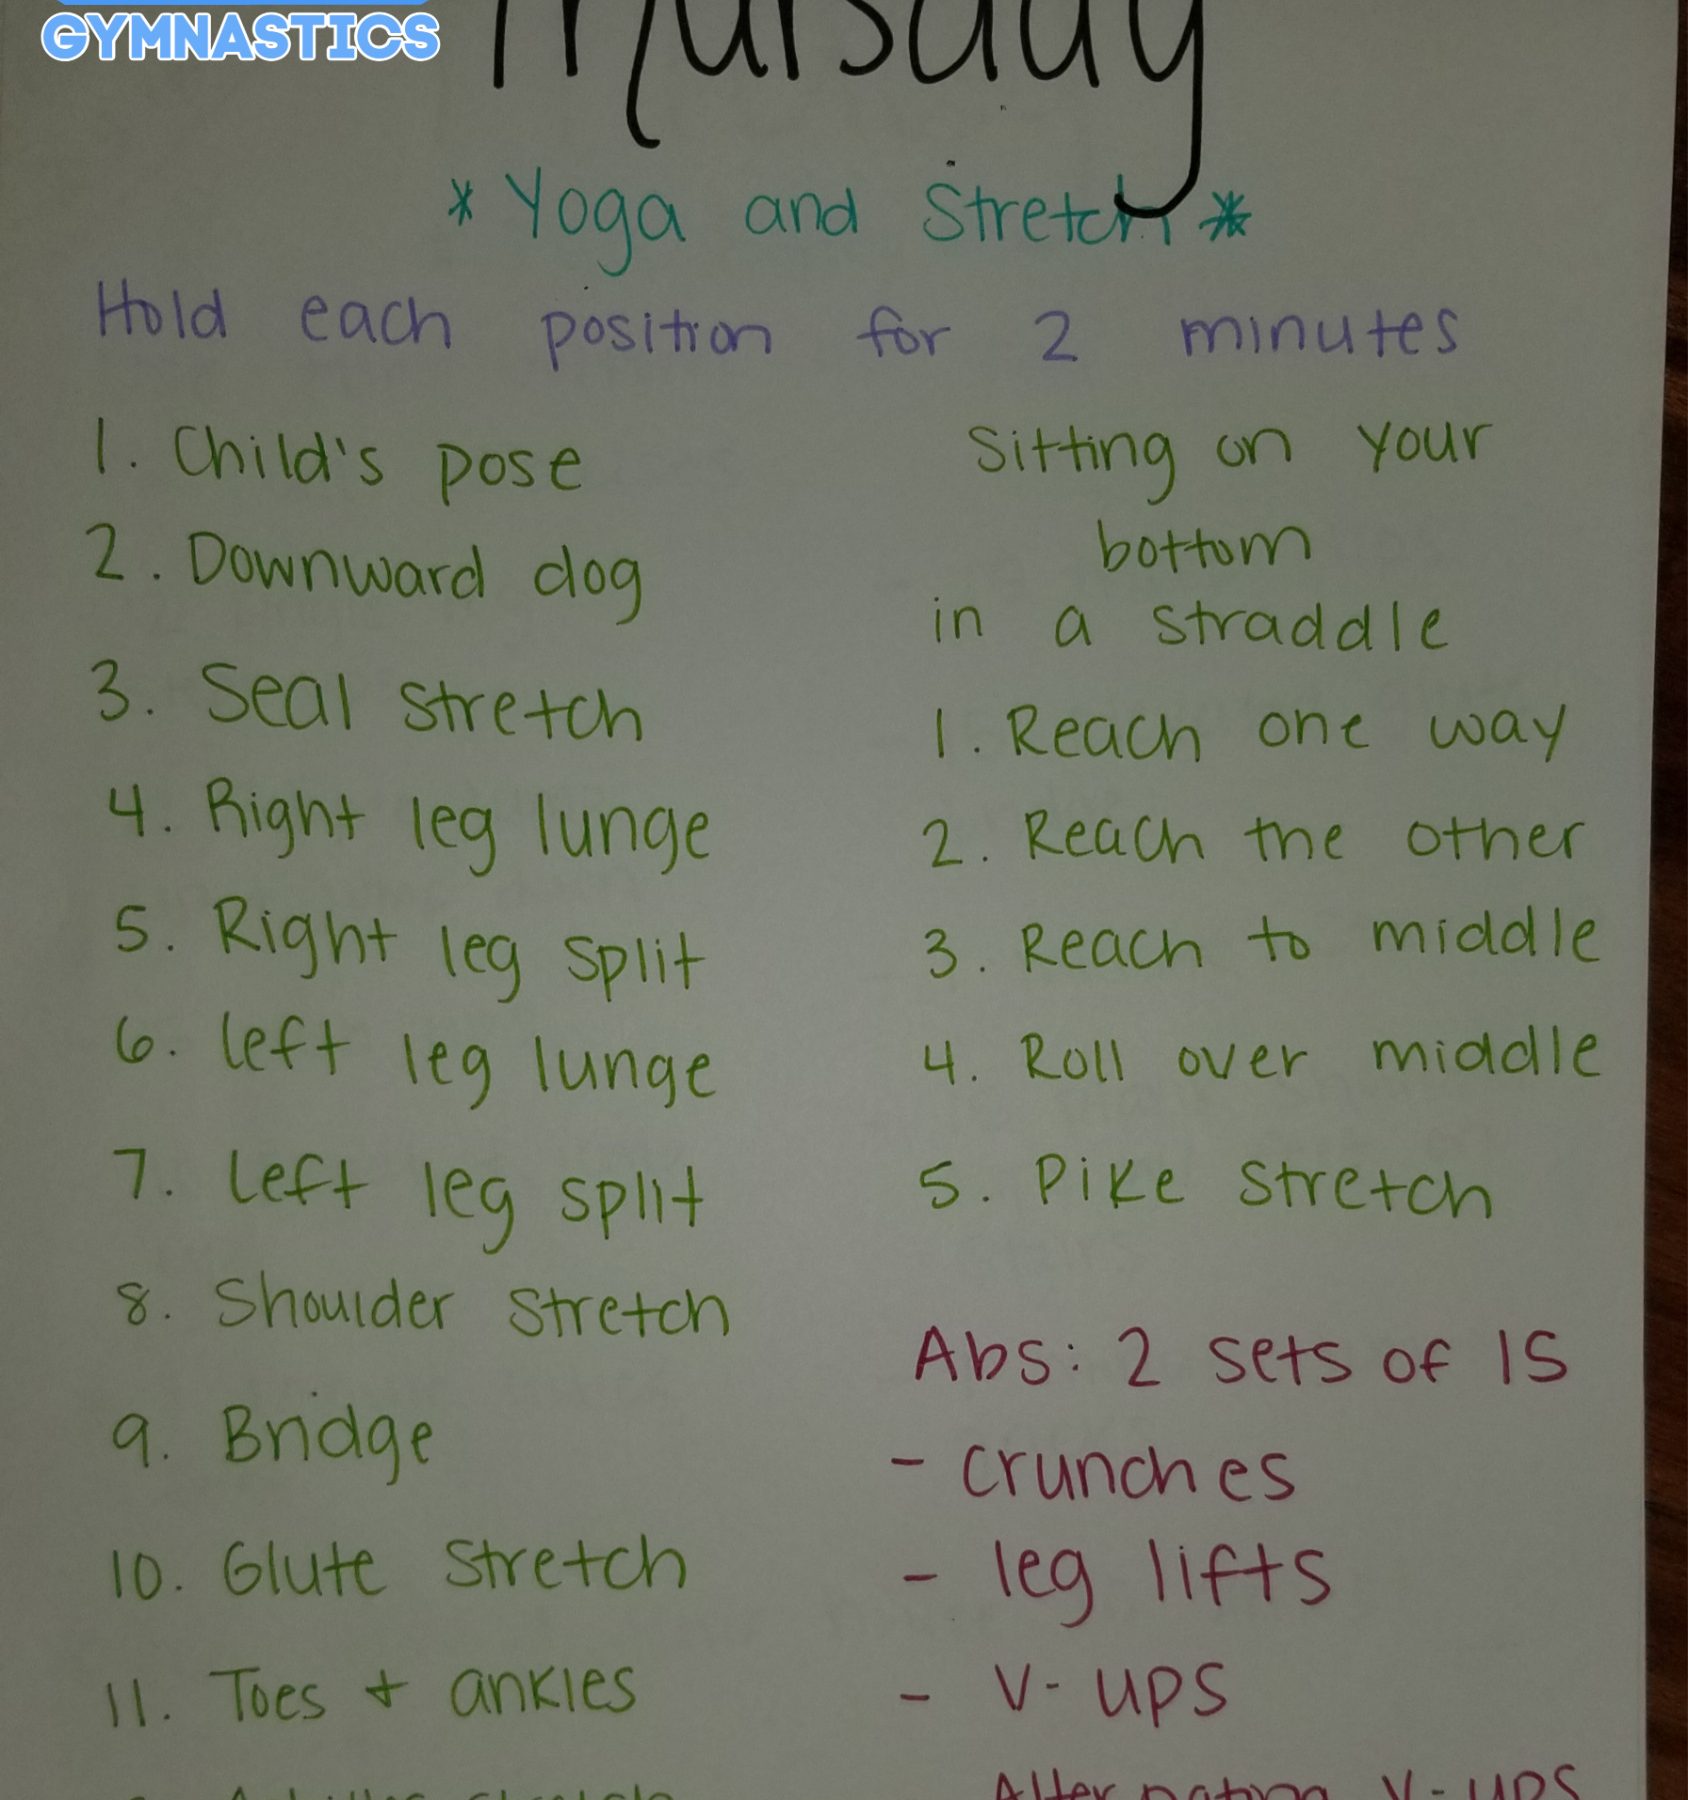 GYMNASTICS
Thursday
* Yoga and Stretch *
Hold each position for 2 minutes
1. Child's pose
2. Downward dog
3. Seal stretch
4. Right leg lunge
5. Right leg split
6. left leg lunge
7. left leg split
8. Shoulder stretch
9. Bridge
10. Glute stretch
11. Toes + ankles
stretch
Sitting on your
bottom
in a straddle
1. Reach one way
2. Reach the other
3. Reach to middle
4. Roll over middle
5. Pike stretch
Abs: 2 sets of 15
- crunches
- leg lifts
- V-ups
Alternating V-ups